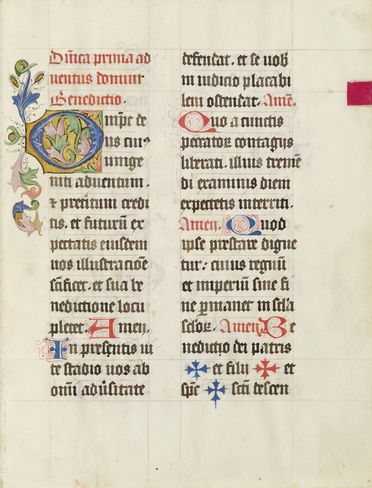 Dn̄ica prima ad
uentus domini
Benedictio.
Om̄ps de
us cuiꝰ
unige
niti aduentum.
& preteritum credi
tis. et futurū ex
pectatis eiusdem
uos illustracōe
sc̄ificet. et sua be
nedictione locu
pletet. Amen.
In presentis ui
te stadio uos ab
omī aduersitate
defendat. et se uob̄
in iudicio placabi
lem ostendat. Amē.
Quo a cunctis
peccator̄ contagijs
liberati. illius tremē
di examinis diem
expectetis interriti.
Amen. Quod
ipse prestare digne
tur. cuius regnū
et imperiū sine fi
ne permanet in scl̄a
scl̄oꝝ. Amen. Be
nedictio dei patris
✠ et filij ✠ et
sp̄c ✠ sc̄ti descen